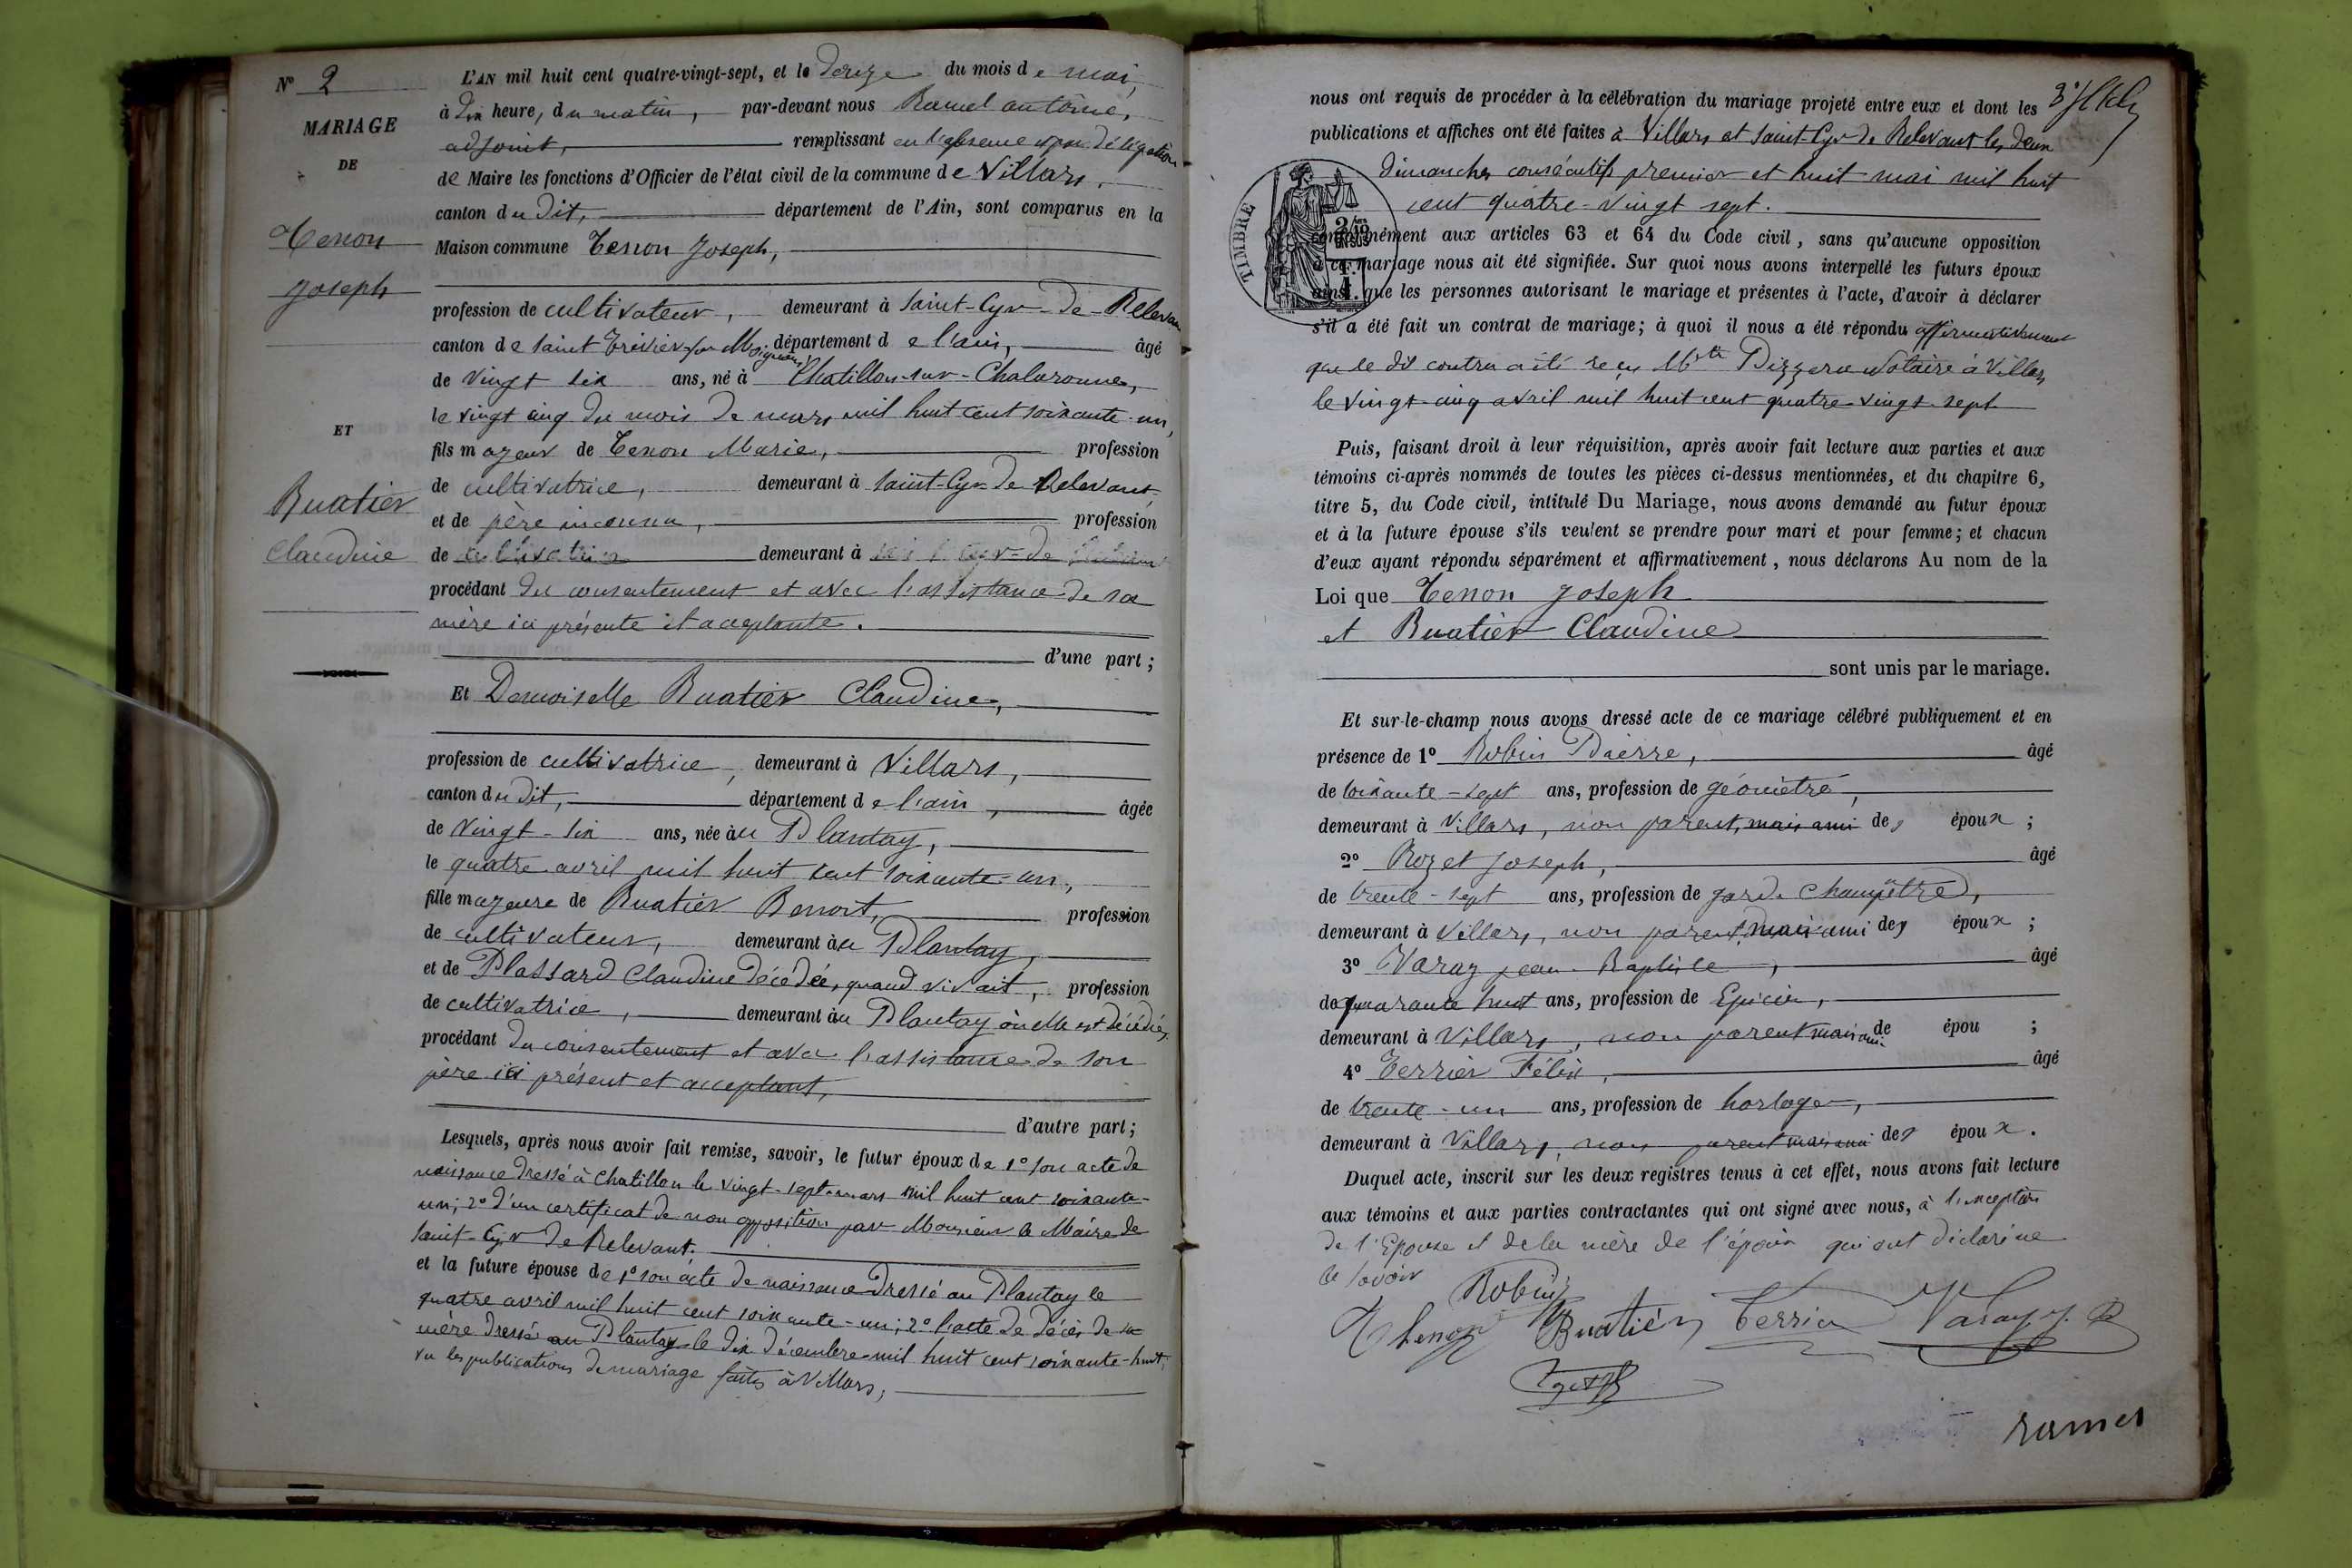 N° 2
MARIAGE
DE
Tenon
Joseph
ET
Buatier
Claudine
L'AN mil huit cent quatre-vingt-sept, et le douze du mois de mai,
à dix heure, du matin, par-devant nous Ramel antoine,
adjoint, remplissant en l'absence et par délégation
de Maire les fonctions d'Officier de l'état civil de la commune de Villars,
canton du dit, département de l'Ain, sont comparus en la
Maison commune Tenon Joseph,
profession de cultivateur, demeurant à Saint-Cyr-de-Relevant
canton de Saint Trivier sur Moignans département de l'ain, âgé
de vingt six ans, né à Chatillon-sur-Chalaronne,
le vingt cinq du mois de mars mil huit cent soixante-un,
fils majeur de Tenon Marie, profession
de cultivatrice, demeurant à Saint-Cyr de Relevant
et de père inconnu, profession
de cultivatrice demeurant à
procédant du consentement et avec l'assistance de sa
mère ici présente et acceptante.
d'une part;
Et Demoiselle Buatier Claudine,
profession de cultivatrice, demeurant à Villars,
canton du dit, département de l'ain, âgée
de vingt-six ans, née au Plantay,
le quatre avril mil huit cent soixante-un,
fille majeure de Buatier Benoit, profession
de cultivateur, demeurant au Plantay,
et de Plassard Claudine décédée, quand vivait, profession
de cultivatrice, demeurant au Plantay où elle est décédée,
procédant du consentement et avec l'assistance de son
père ici présent et acceptant,
d'autre part;
Lesquels, après nous avoir fait remise, savoir, le futur époux de 1° son acte de
naissance dressé à Chatillon le vingt-sept mars mil huit cent soixante-
un; 2° d'un certificat de non opposition par Monsieur le Maire de
Saint-Cyr de Relevant.
et la future épouse de 1° son acte de naissance dressé au Plantay le
quatre avril mil huit cent soixante-un; 2° l'acte de décès de sa
mère dressé au Plantay le dix décembre mil huit cent soixante-huit,
vu les publications de mariage faites à Villars,
nous ont requis de procéder à la célébration du mariage projeté entre eux et dont les
publications et affiches ont été faites à Villars et Saint-Cyr de Relevant les deux
dimanches consécutifs premier et huit mai mil huit
cent quatre-vingt sept.
TIMBRE
conformément aux articles 63 et 64 du Code civil, sans qu'aucune opposition
à ce mariage nous ait été signifiée. Sur quoi nous avons interpellé les futurs époux
ainsi que les personnes autorisant le mariage et présentes à l'acte, d'avoir à déclarer
s'il a été fait un contrat de mariage; à quoi il nous a été répondu affirmativement
que le dit contra a été reçu Notaire à Villars
le vingt-cinq avril mil huit cent quatre vingt-sept
Puis, faisant droit à leur réquisition, après avoir fait lecture aux parties et aux
témoins ci-après nommés de toutes les pièces ci-dessus mentionnées, et du chapitre 6,
titre 5, du Code civil, intitulé Du Mariage, nous avons demandé au futur époux
et à la future épouse s'ils veulent se prendre pour mari et pour femme; et chacun
d'eux ayant répondu séparément et affirmativement, nous déclarons Au nom de la
Loi que Tenon Joseph
et Buatier Claudine
sont unis par le mariage.
Et sur-le-champ nous avons dressé acte de ce mariage célébré publiquement et en
présence de 1° Robin Pierre, âgé
de soixante-sept ans, profession de géomètre,
demeurant à Villars, non parent, mais ami des époux;
2° Rozet Joseph, âgé
de trente-sept ans, profession de garde champêtre,
demeurant à Villars, non parent, mais ami des époux;
3° Varay jean-Baptiste, âgé
de quarante huit ans, profession de Epicier,
demeurant à Villars, non parent mais ami de épou;
4° Terrier Félix, âgé
de trente-un ans, profession de horloger,
demeurant à Villars, non parent mais ami des époux.
Duquel acte, inscrit sur les deux registres tenus à cet effet, nous avons fait lecture
aux témoins et aux parties contractantes qui ont signé avec nous, à l'exception
de l'Epouse et de la mère de l'époux qui ont déclaré ne
le savoir
Robin
Thenon Buatier Terrier Varay J. B
ramel